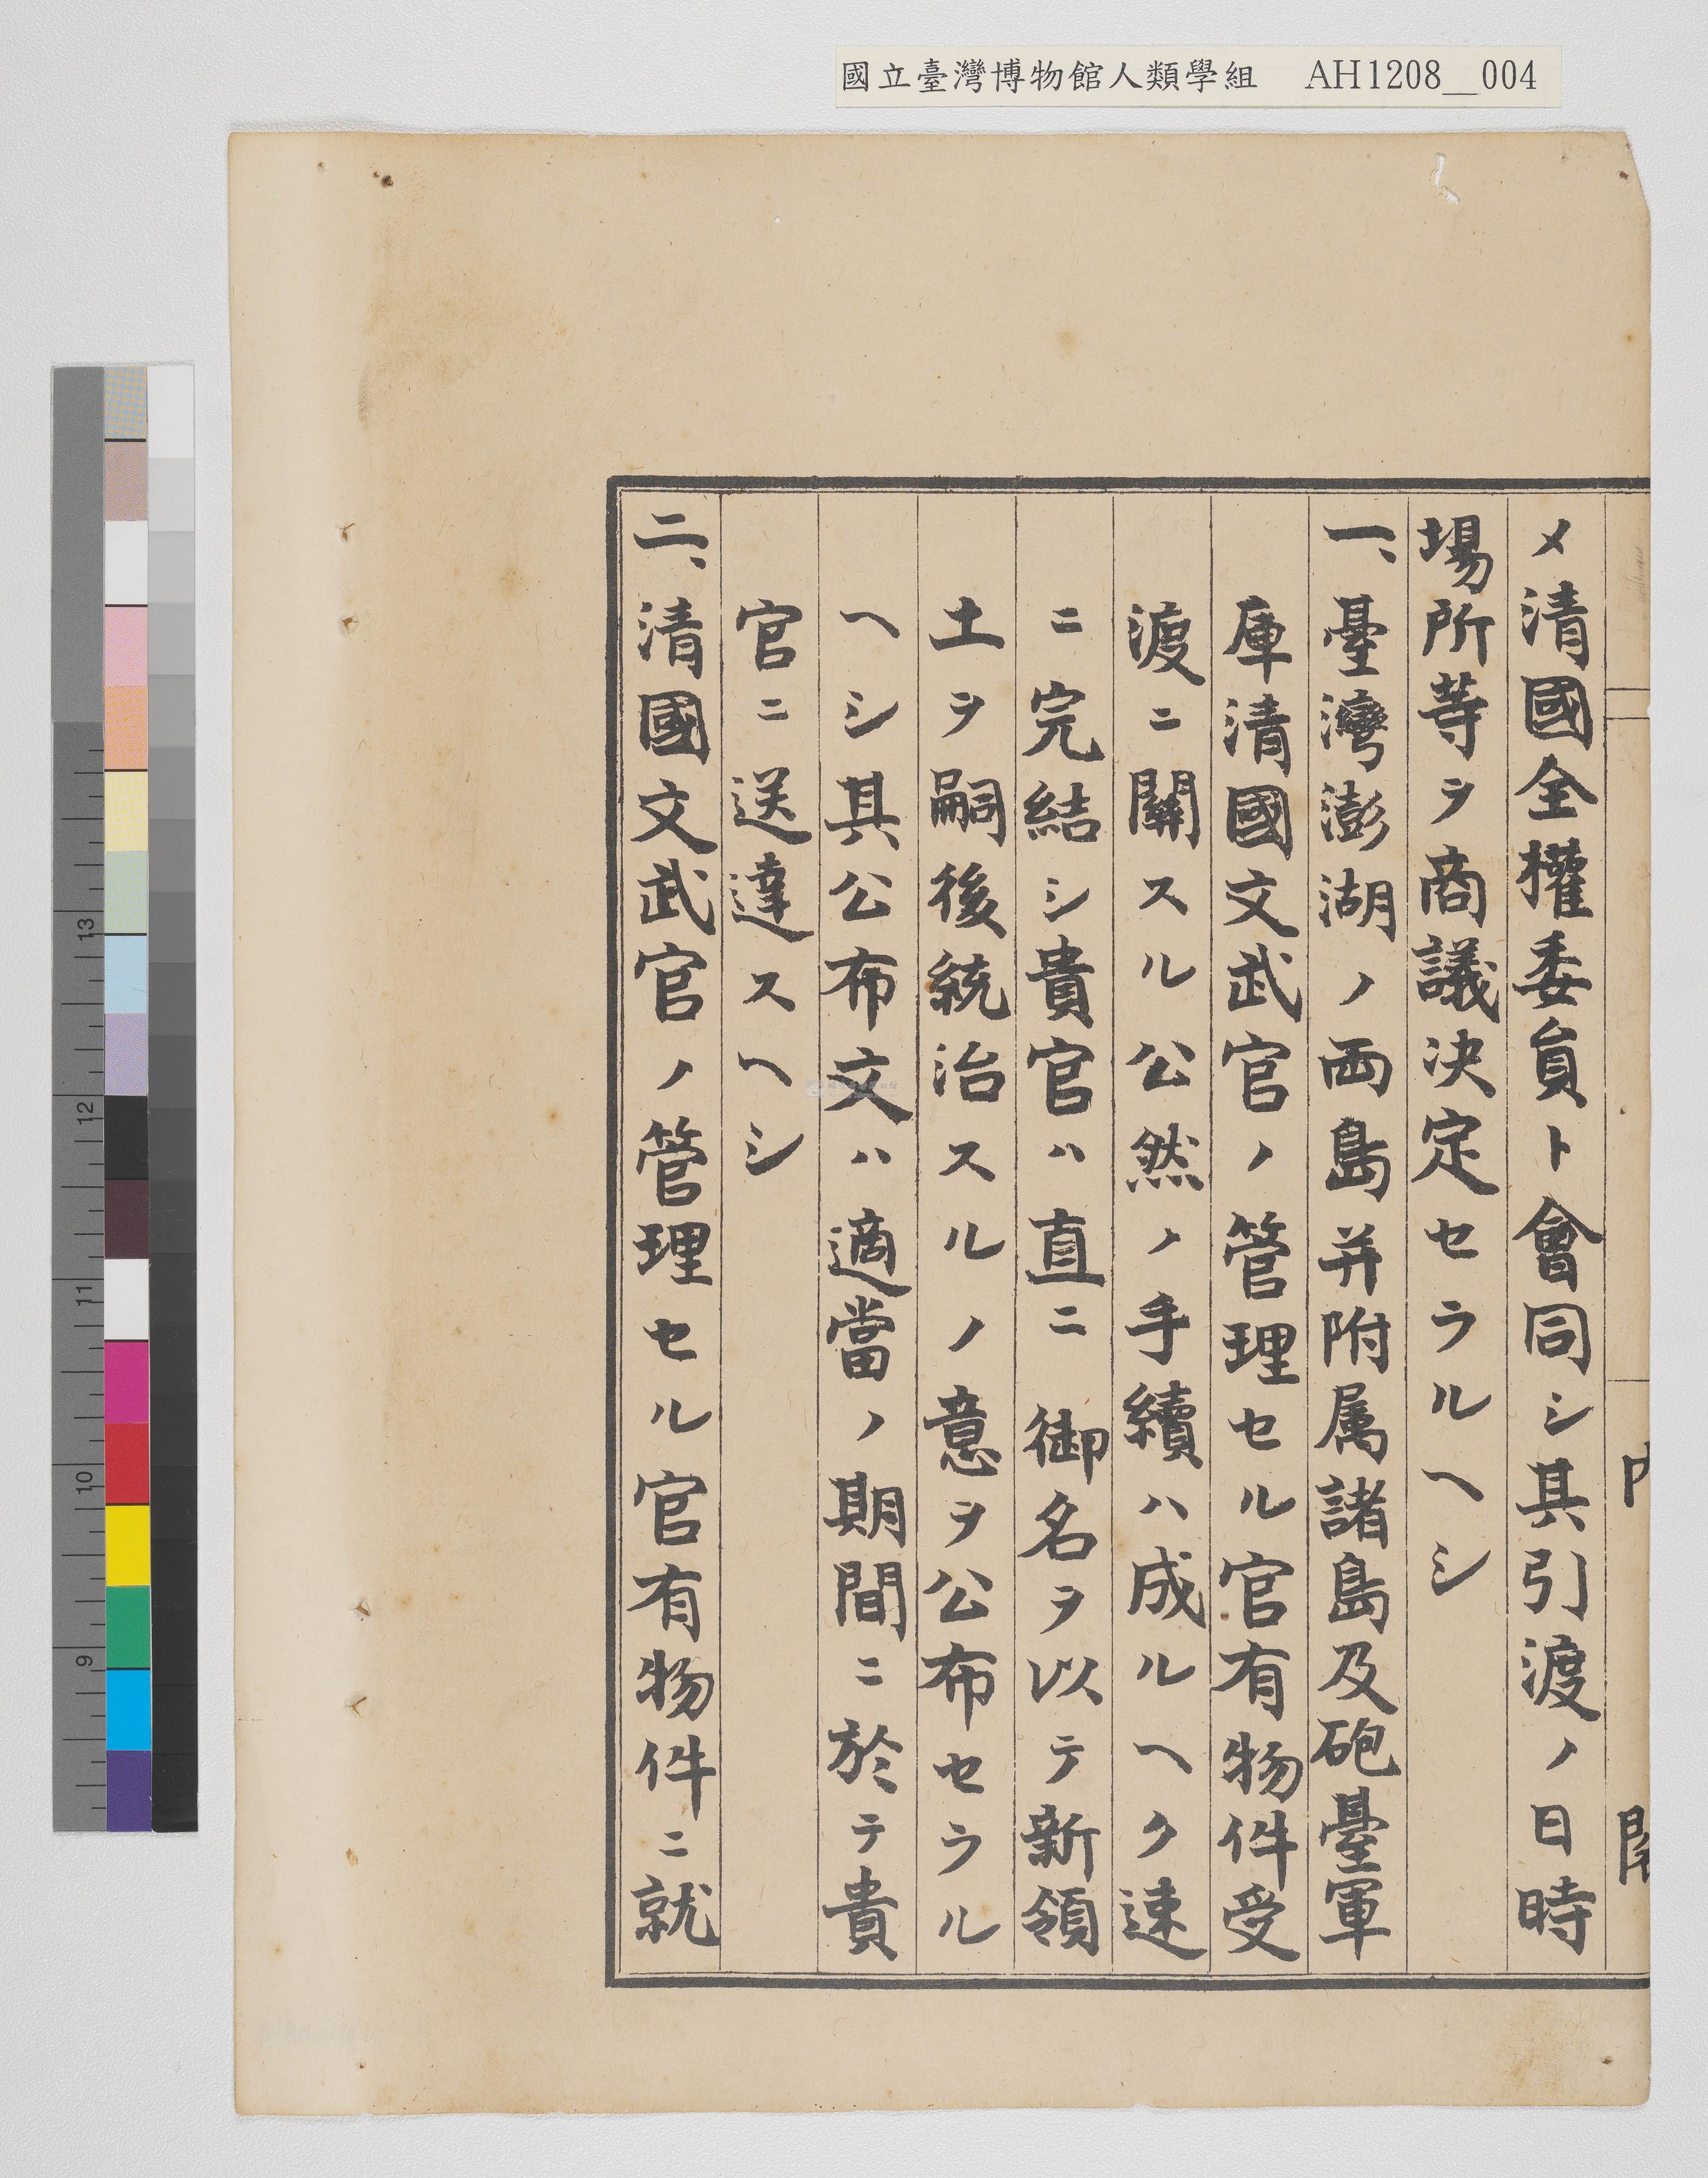 國立臺灣博物館人類學組 AH1208__004
メ清國全權委員ト會同シ其引渡ノ日時
場所等ヲ商議決定セラルヘシ
一、臺灣澎湖ノ両島并附属諸島及砲臺軍
庫清國文武官ノ管理セル官有物件受
渡ニ關スル公然ノ手續ハ成ルヘク速
ニ完結シ貴官ハ直ニ 御名ヲ以テ新領
土ヲ嗣後統治スルノ意ヲ公布セラル
ヘシ其公布文ハ適當ノ期間ニ於テ貴
官ニ送達スヘシ
二、清國文武官ノ管理セル官有物件ニ就
13
12
11
10
9